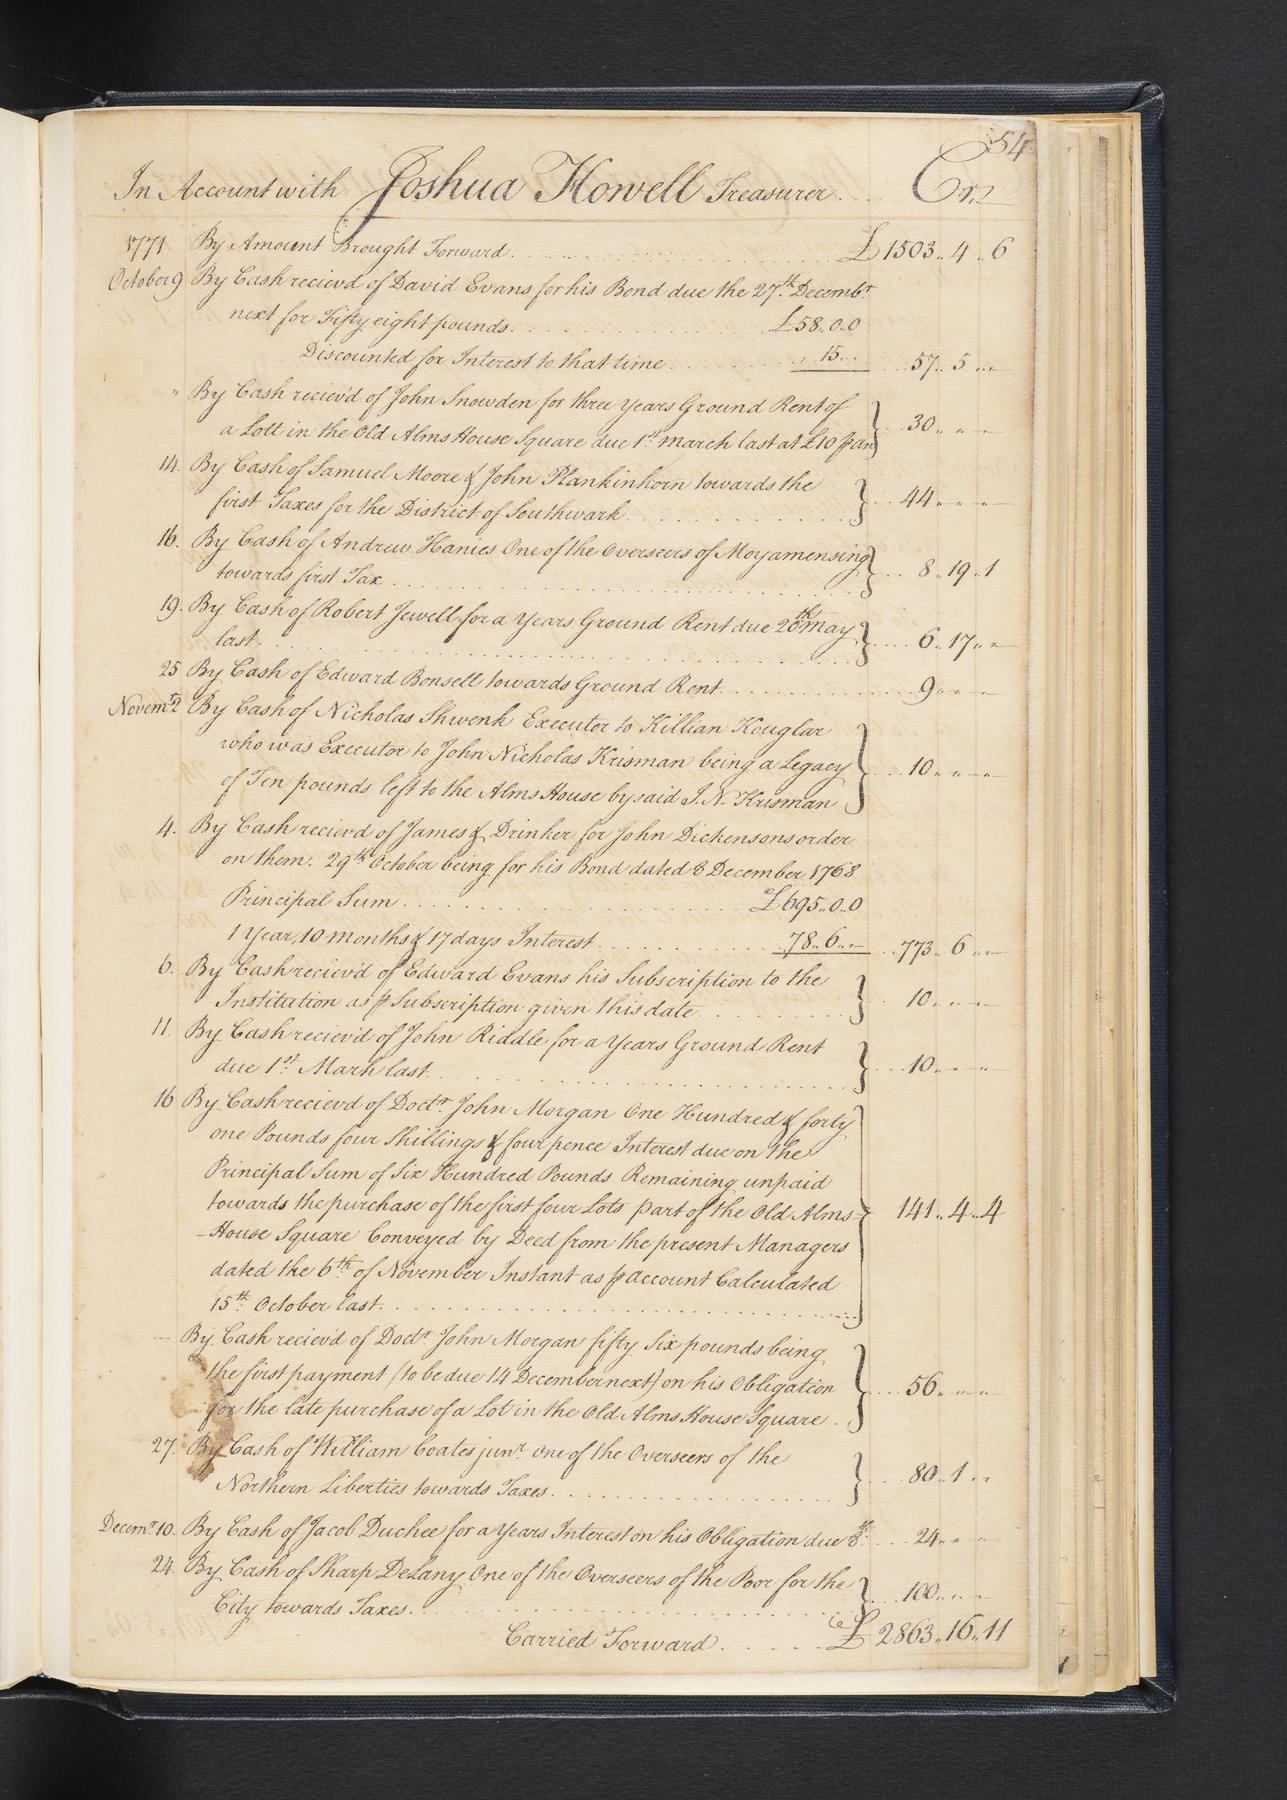 54
In Account with Joshua Howell Treasurer .. Cr.
1771 By Amount Brought Forward. £1503..4..6
October 9 By Cash recievd of David Evans for his Bond due the 27th Decembr
next for Fifty eight pounds. £58..0..0
Discounted for Interest to that time .. 15.. 57..5..
" By Cash recievd of John Snowden for three Years Ground Rent of
a Lott in the Old Alms House Square due 1st march last at £10 p an 30..
14. By Cash of Samuel Moore & John Plankinhorn towards the
first Taxes for the District of Southwark 44..
16. By Cash of Andrew Hanies One of the Overseers of Moyamensing
towards first Tax 8..19..1
19. By Cash of Robert Jewell for a Years Ground Rent due 26th May
last 6..17..
25 By Cash of Edward Bonsell towards Ground Rent 9..
Novemr 2 By Cash of Nicholas Shwenk Executor to Killian Kouglar
who was Executor to John Nicholas Krisman being a Legacy
of Ten pounds left to the Alms House by said J. N. Krisman 10..
4. By Cash recievd of James & Drinker for John Dickensons order
on them. 29th October being for his Bond dated 8 December 1768
Principal Sum £695..0..0
1 Year, 10 months & 17 days Interest 78..6.. 773..6..
6. By Cash reciev'd of Edward Evans his Subscription to the
Institation as p Subscription given this date 10..
11. By Cash reciev'd of John Riddle for a Years Ground Rent
due 1st Marh last. 10..
16 By Cash recievd of Doctr John Morgan One Hundred & forty
one Pounds four Shillings & four pence Interest due on the
Principal Sum of Six Hundred Pounds Remaining unpaid
towards the purchase of the first four Lots part of the Old Alms= 141..4..4
-House Square Conveyed by Deed from the present Managers
dated the 6th of November Instant as p account Calculated
15th October last.
By Cash reciev'd of Doctr John Morgan fifty Six pounds being
the first payment (to be due 14 December next) on his Obligation 56..
for the late purchase of a Lot in the Old Alms House Square.
27. By Cash of William Coates junr. one of the Overseers of the
Northern Liberties towards Taxes. 80..1..
Decemr 10. By Cash of Jacob Duchee for a Years Interest on his Obligation due 8th 24..
24. By Cash of Sharp Delany One of the Overseers of the Poor for the
City towards Taxes. 100..
Carried Forward £2863..16..11